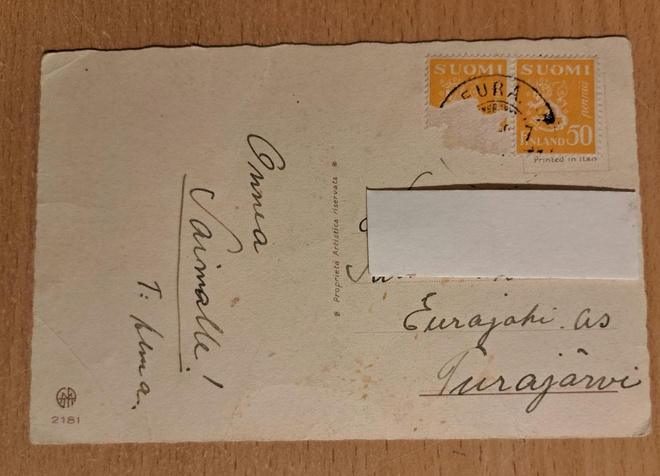 SUOMI
SUOMI
EURA
7
pennia
FINLAND 50
Printed in Italy
Proprietà Artistica riservata
Onnea
Saimalle!
T: Irma.
Eurajoki. as
Turajärvi
2181